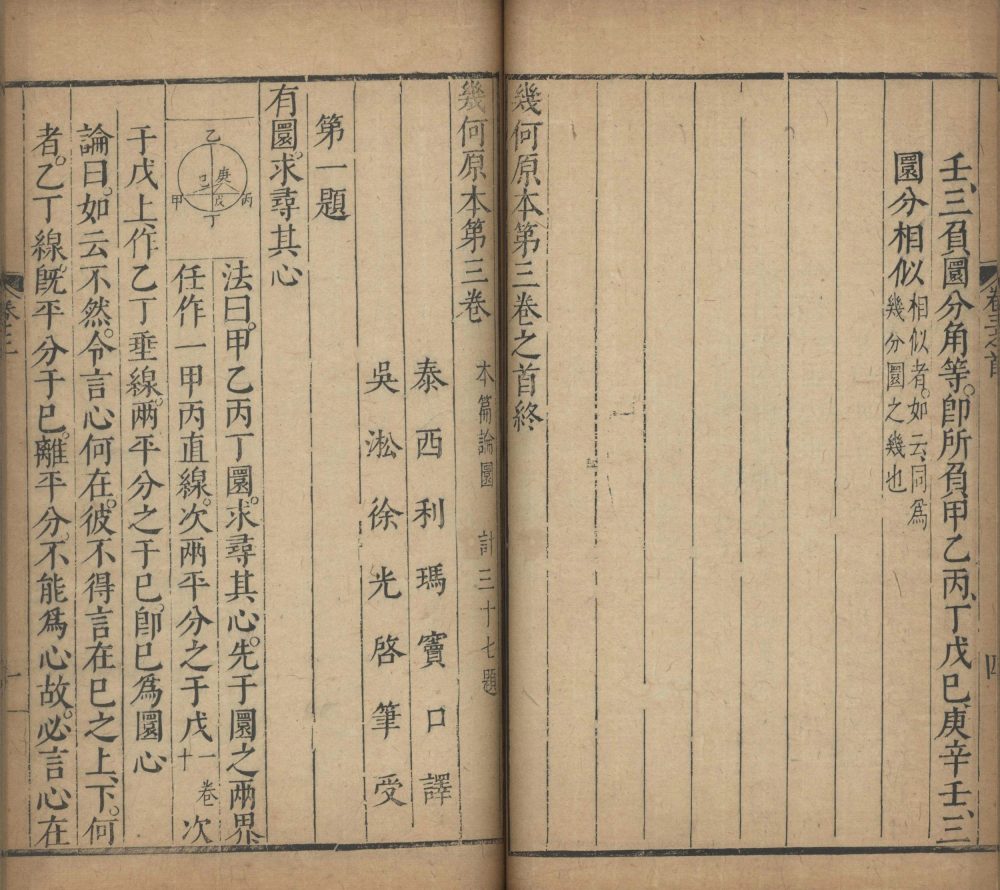 壬、三負圜分角等。卽所負甲乙丙、丁戊巳、庚辛壬、三
圜分相似相似者。如云、同爲
幾分圜之幾也
幾何原本第三卷之首終
幾何原本第三卷 本篇論圜 計三十七題
泰西利瑪竇口譯
吳淞徐光啓筆受
第一題
有圜。求尋其心
乙
庚
己
甲
戊
丙
丁
法曰。甲乙丙丁圜。求尋其心。先于圜之兩界
任作一甲丙直線。次兩平分之于戊一卷
十次
于戊上、作乙丁垂線。兩平分之于巳。卽巳爲圜心
論曰。如云不然。令言心何在。彼不得言在巳之上、下。何
者。乙丁線。旣平分于巳。離平分。不能爲心故。必言心在
卷三
一